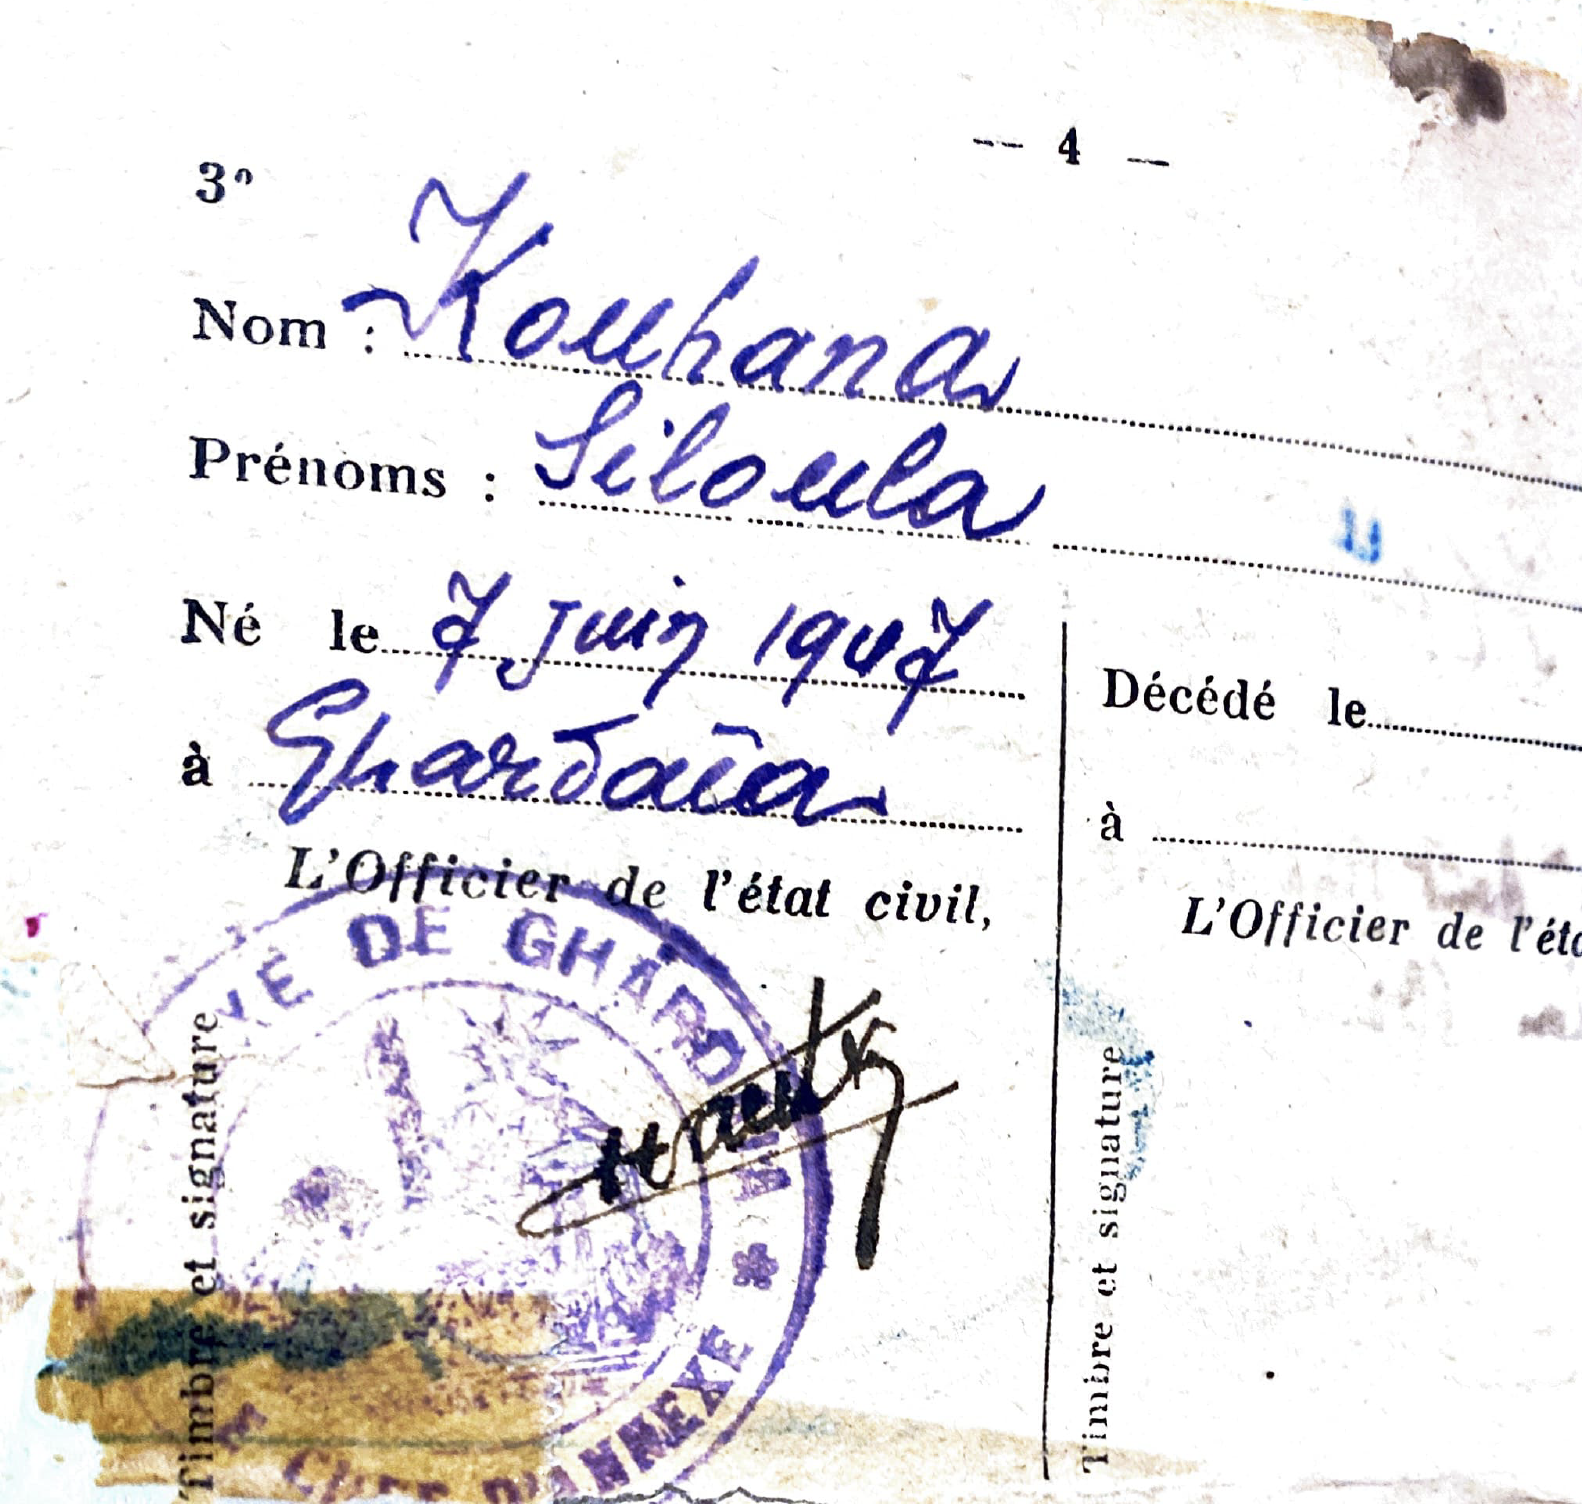 -- 4 --
3º
Nom : Kouhana
Prénoms : Siloula
Né le 7 Juin 1947
à Ghardaïa
L'Officier de l'état civil,
Timbre et signature
DE GHARD
CHEF D'ANNEXE *
Décédé le
à
L'Officier de l'éta
Timbre et signature